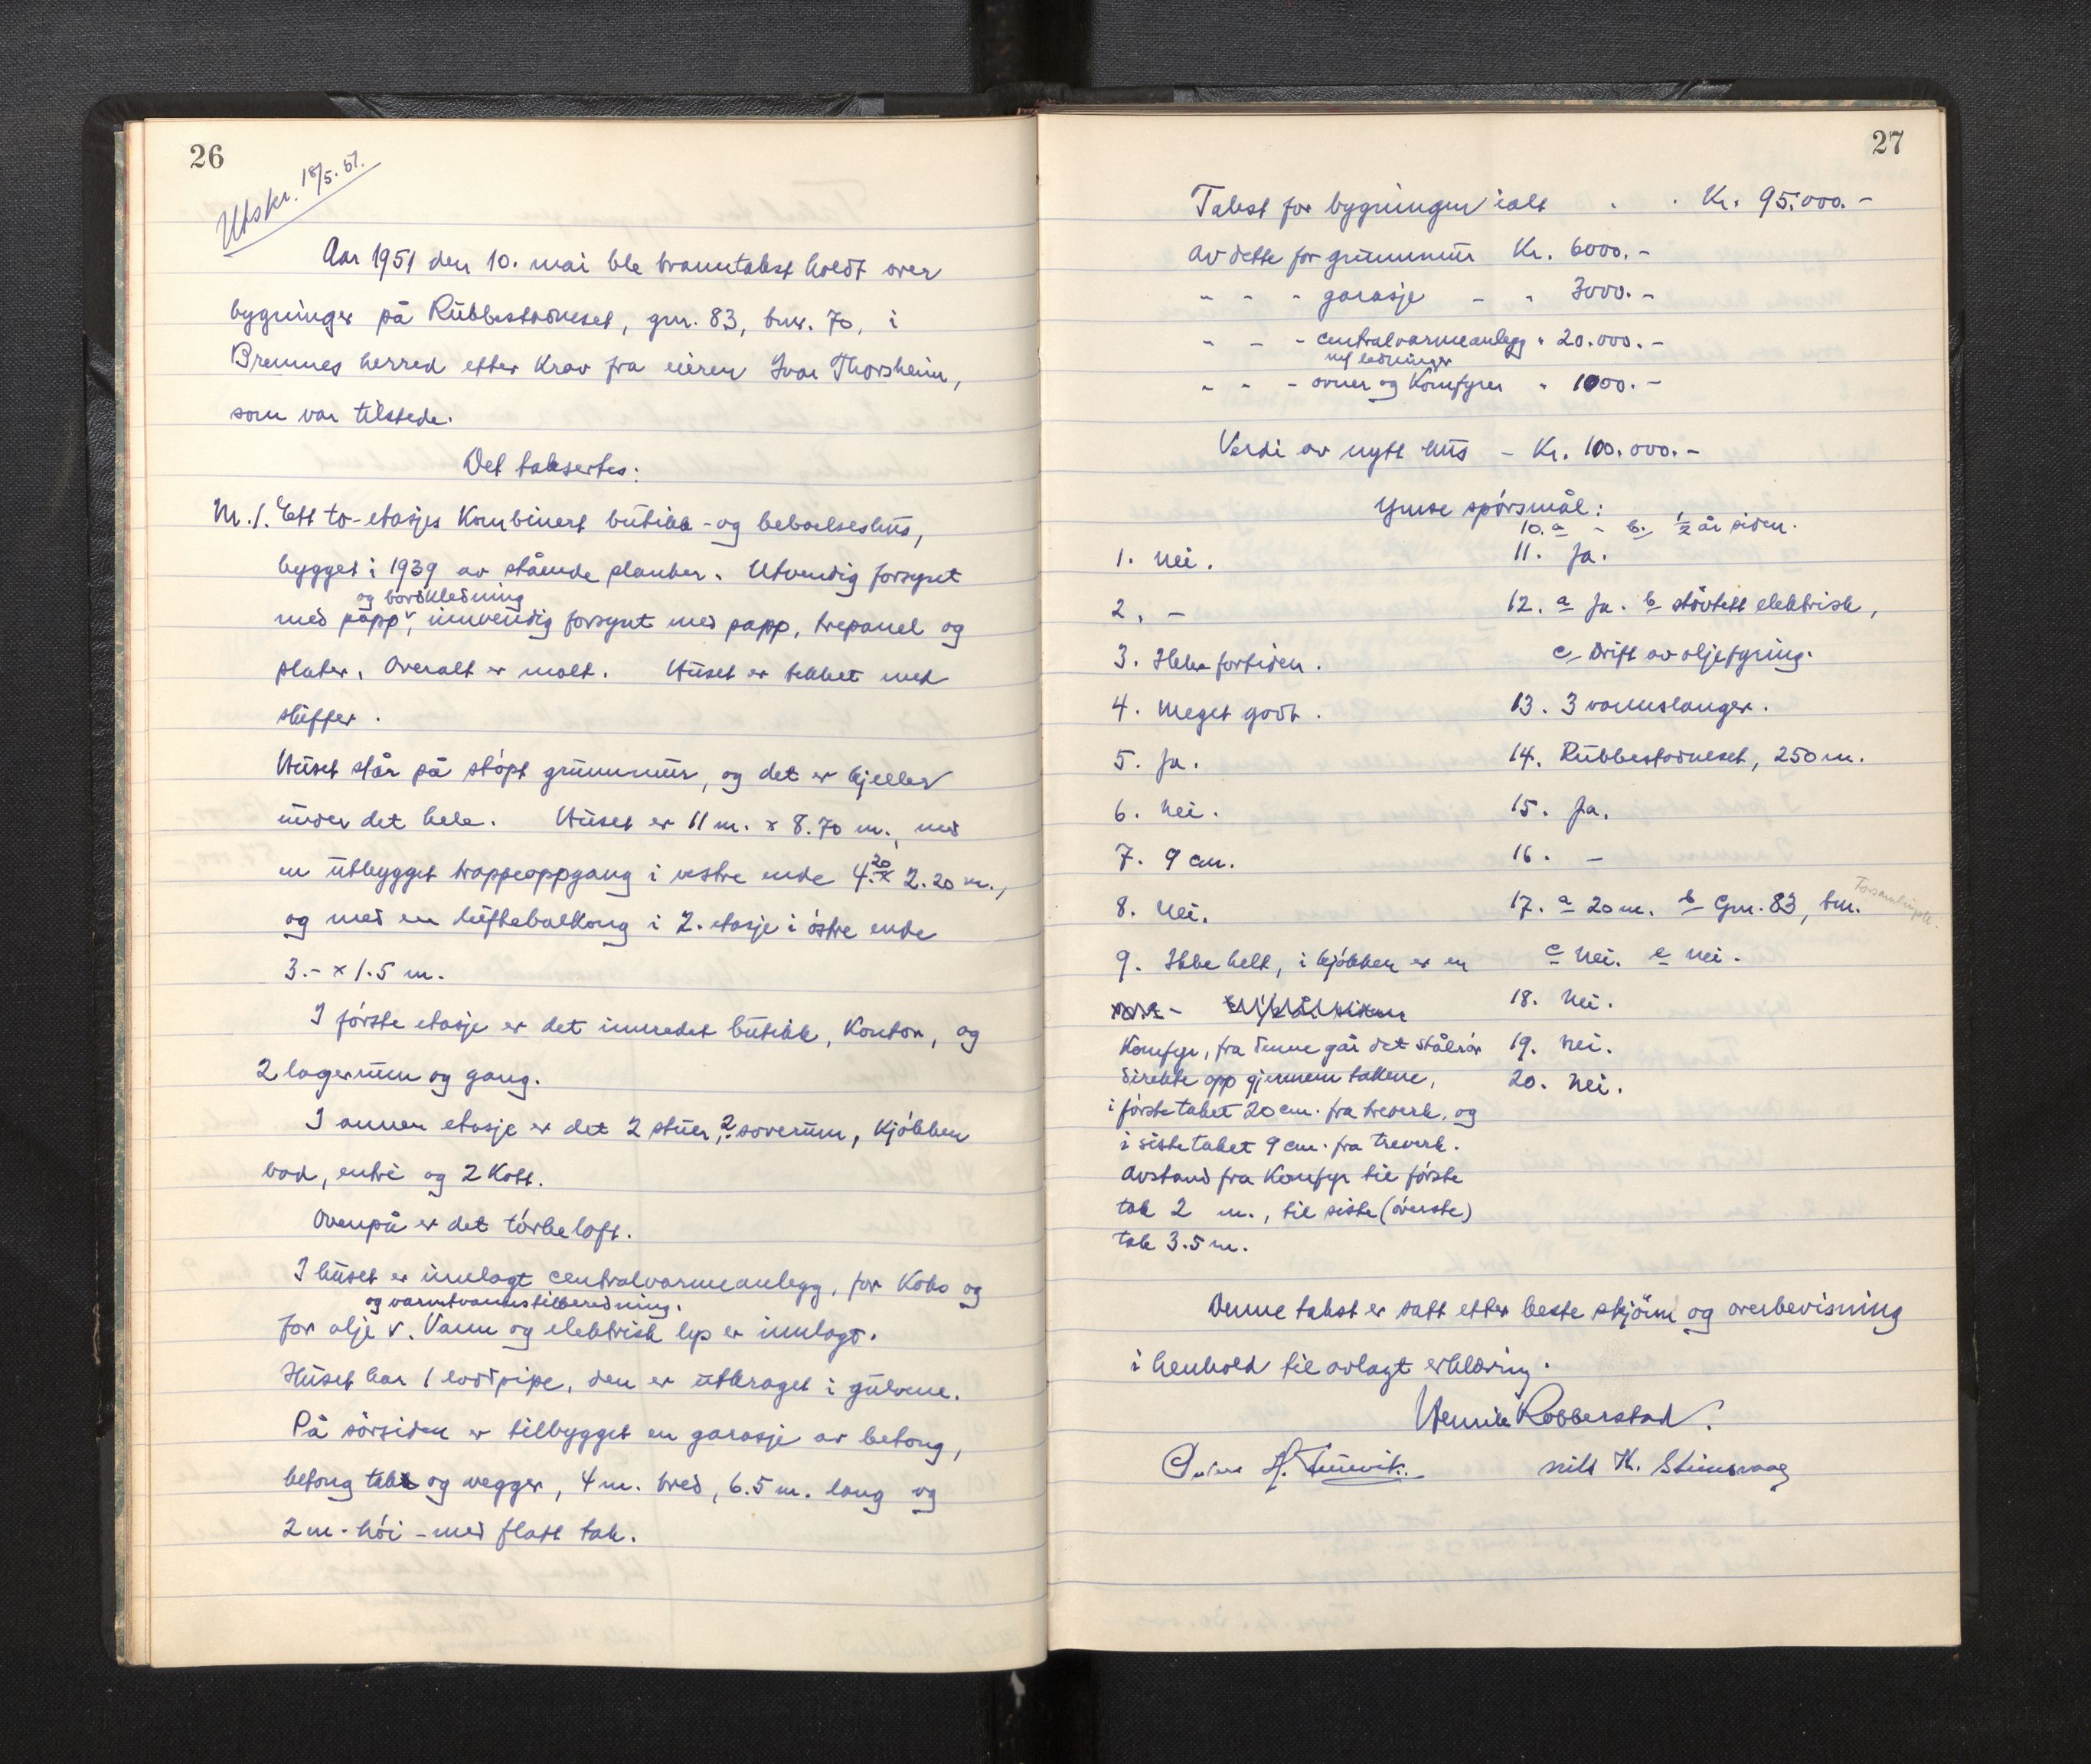 26
Utskr. 18/5. 51.
Aar 1951 den 10. mai ble branntakst holdt over
bygninger på Rubbestadneset, gnr. 83, bnr. 70, i
Bremnes herred etter krav fra eieren Ivar Thorsheim,
som var tilstede.
Det taksertes:
M. 1. Ett to-etasjes kombinert butikk - og beboelseshus,
bygget i 1939 av stående planker. Utvendig forsynt
og bordkledning
med papp v, innvendig forsynt med papp, trepanel og
plater. Overalt er malt. Huset er tekket med
skiffer.
Huset står på støpt grunnmur, og det er kjeller
under det hele. Huset er 11 m. x 8.70 m., med
en utbygget trappeoppgang i vestre ende 4.20 x 2.20 m.,
og med en luftebalkong i 2. etasje i østre ende
3.- x 1.5 m.
I første etasje er det innredet butikk, kontor, og
2 lagerrum og gang.
I annen etasje er det 2 stuer, 2 soverum, kjøkken
bad, entré og 2 kott.
Ovenpå er det tørkeloft.
I huset er innlagt centralvarmeanlegg, for koks og
og varmtvannstilberedning.
for olje v. Vann og elektrisk lys er innlagt.
Huset har 1 loddpipe, den er utkraget i gulvene.
På sørsiden er tilbygget en garasje av betong,
betong tak og vegger, 4 m. bred, 6.5 m. lang og
2 m. høi - med flatt tak.
27
Takst for bygningen ialt . . Kr. 95.000.-
av dette for grunnmur Kr. 6000.-
" - - garasje - " 3000.-
" - - centralvarmeanlegg " 20.000.-
m/ ledninger
" - - ovner og komfyrer " 1000.-
Verdi av nytt hus - Kr. 100.000.-
Ymse spørsmål:
10. a - b. 1/2 år siden.
1. Nei.
11. Ja.
2. -
12. a Ja. b støvtett elektrisk,
3. Ikke fortiden.
c Drift av oljefyring.
4. Meget godt.
13. 3 vannslanger.
5. Ja.
14. Rubbestadneset, 250 m.
6. Nei.
15. Ja.
7. 9 cm.
16. -
8. Nei.
17. a 20 m. b Gnr. 83, bnr.
9. Ikke helt, i kjøkken er en
c Nei. e nei.
18. Nei.
komfyr, fra denne går det stålrør
19. Nei.
direkte opp gjennem takene,
20. Nei.
i første taket 20 cm. fra treverk, og
i siste taket 9 cm. fra treverk.
Avstand fra komfyr til første
tak 2 m., til siste (øverste)
tak 3.5 m.
Denne takst er satt etter beste skjønn og overbevisning
i henhold til avlagt erklæring.
Henrik Robberstad.
Nils K. Stinesvaag